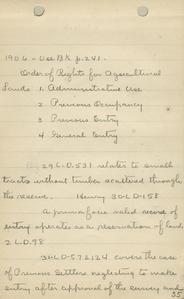 1906 - Use Bk p. 241.
Order of Rights for Agricultural
Lands 1. Administrative Use
2 Previous Occupancy
3 Previous Entry
4 General Entry
29 L.D. 531 relates to small
tracts without timber scattered through
the reserve. Henry 30 L.D. 158
A prima facie valid record of
entry operates as a reservation of land.
2 L.D. 98
31 L.D 57 & 124 covers the case
of Previous Settlers neglecting to make
entry after approval of the survey and
35